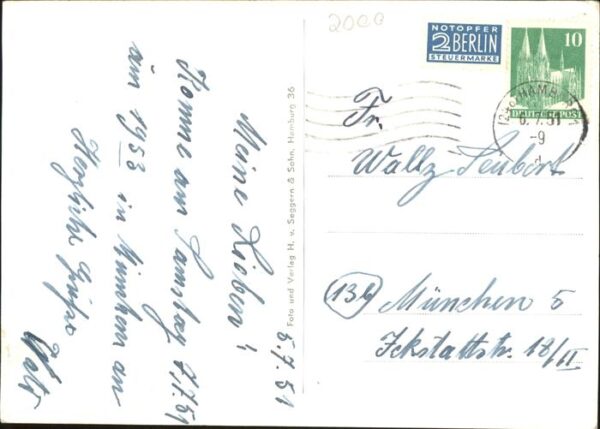 5.7.51
Meine Lieben!
Komme am Samstag 7.7.51
um 19 53 in München an
Herzliche Grüße
Foto und Verlag H. v. Seggern & Sohn, Hamburg 36
2000
NOTOPFER
2 BERLIN
STEUERMARKE
10
DEUTSCHE POST
HAMBURG
6.7.51
-9
Fr.
Waltz Seubert
(13b) München 5
Ickstattstr. 18/II